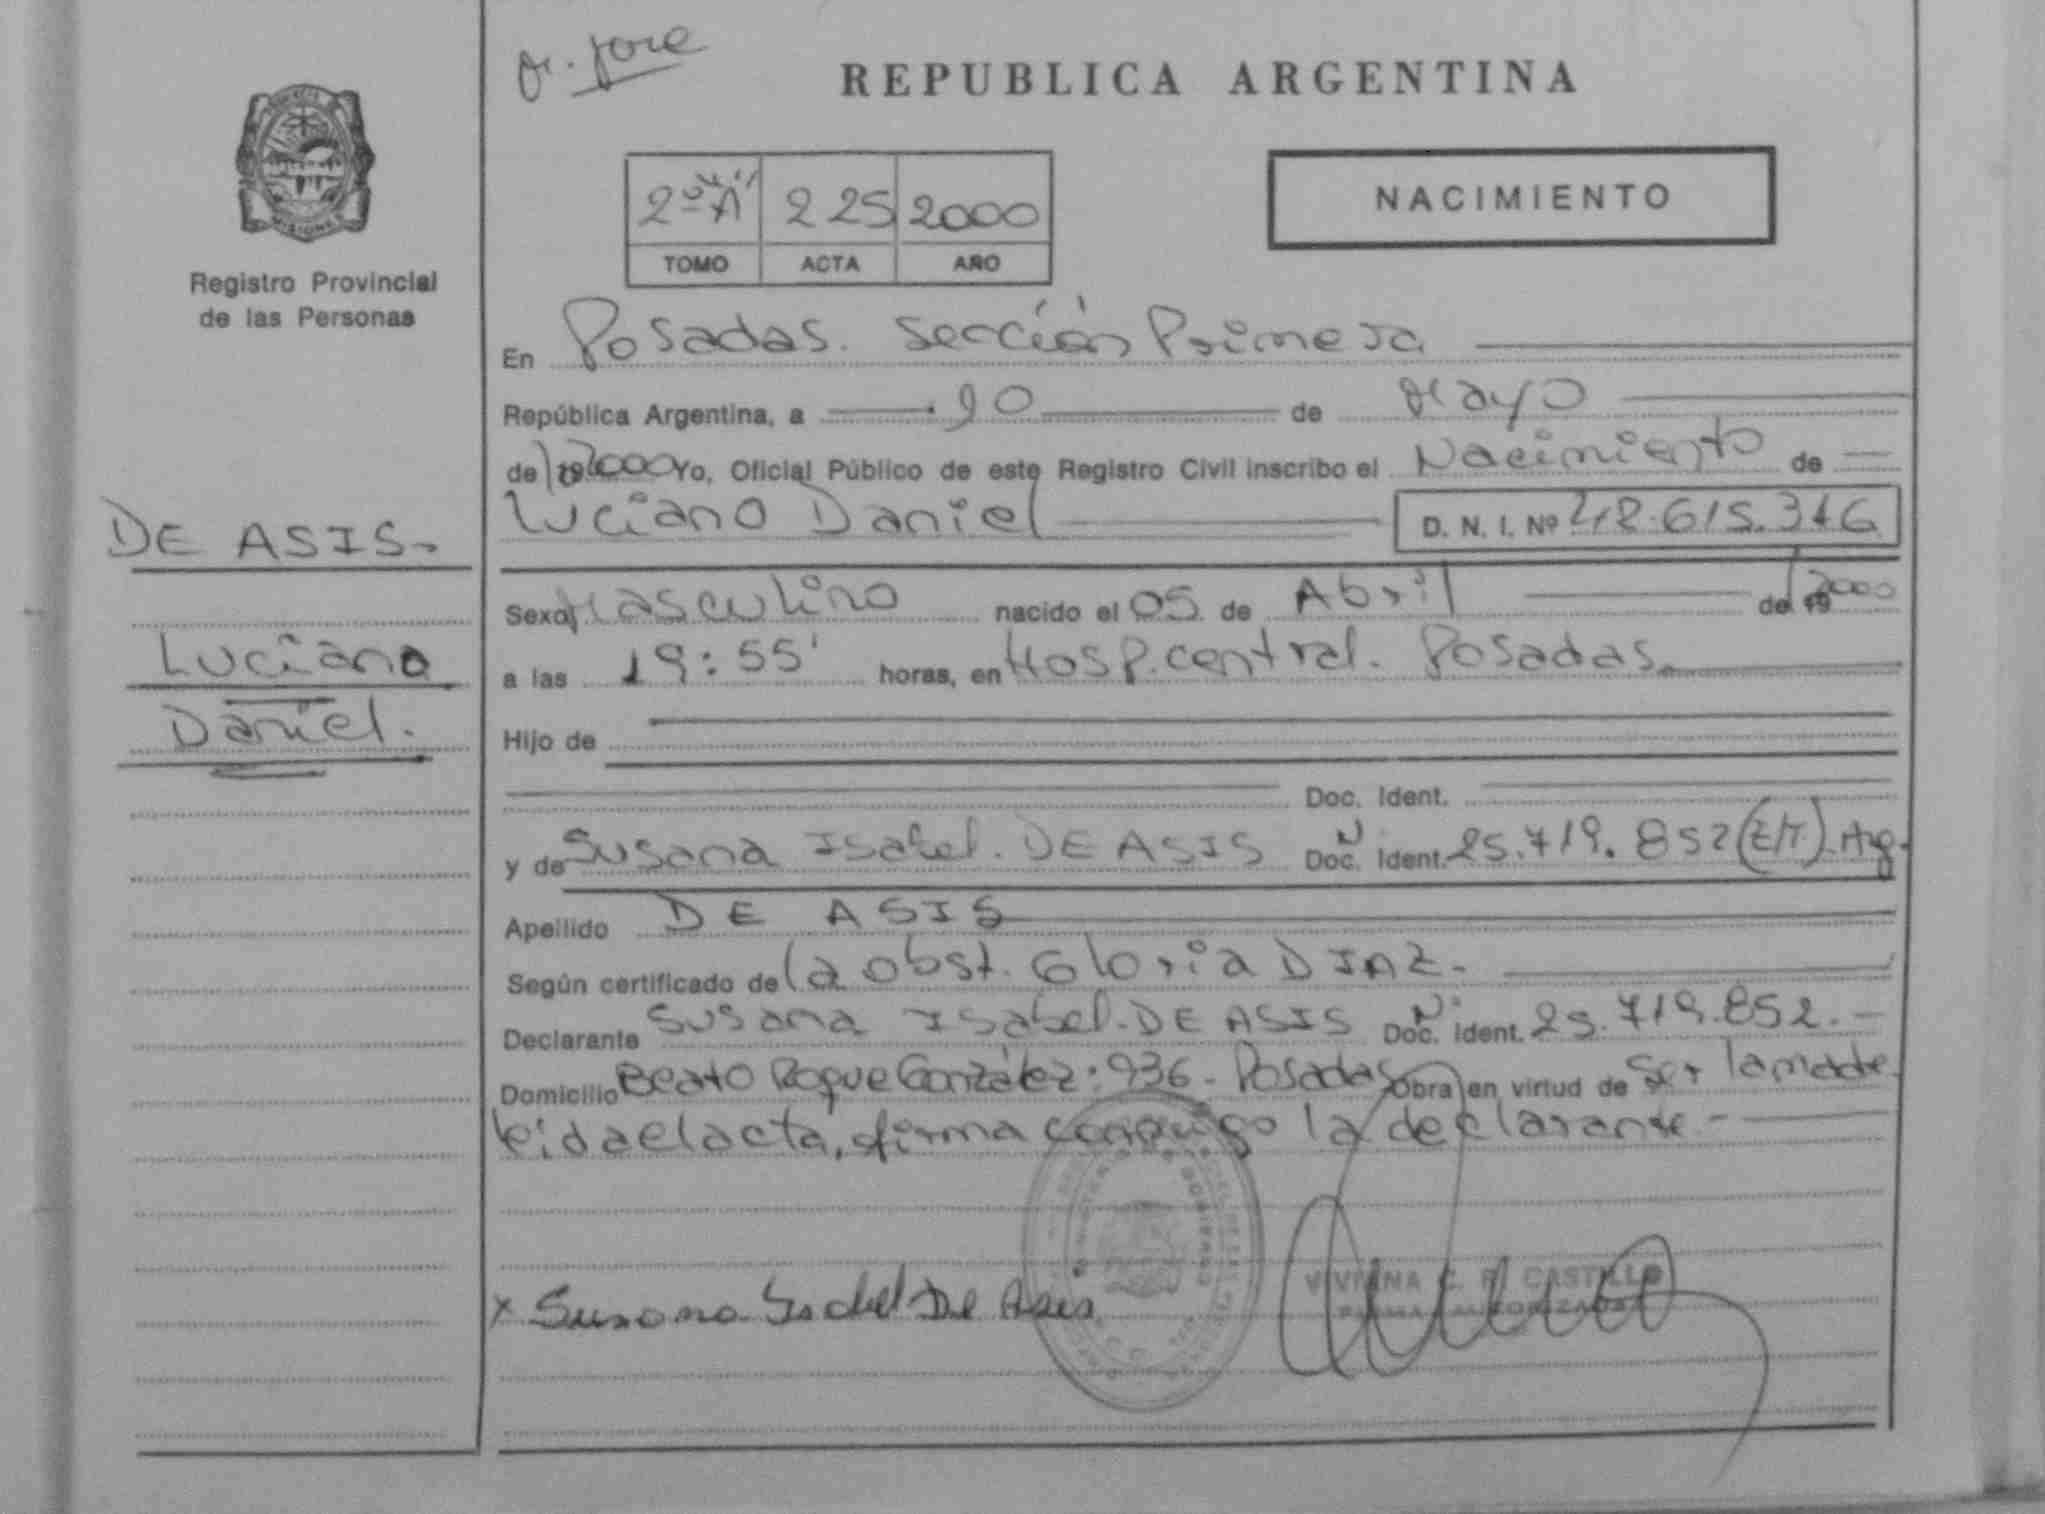 REPUBLICA ARGENTINA
2º "A" 225 2000
TOMO ACTA AÑO
NACIMIENTO
Registro Provincial
de las Personas
DE ASIS.-
Luciano
Daniel.
En Posadas. Sección Primera
República Argentina, a 10 de Mayo
de 19 2000 Yo, Oficial Público de este Registro Civil inscribo el Nacimiento de
Luciano Daniel D. N. I. Nº 42.615.316
Sexo Masculino nacido el 05 de Abril de 19 2000
a las 19:55' horas, en Hosp. central. Posadas.
Hijo de
Doc. Ident.
y de Susana Isabel. DE ASIS Doc. Ident. 25.719.852 (E/T). Arg.
Apellido DE ASIS
Según certificado de la obst. Gloria DIAZ.-
Declarante Susana Isabel. DE ASIS Doc. Ident. 25.719.852.-
Domicilio Beato Roque González: 936 - Posadas Obra en virtud de Ser la madre
leida el acta, firma conmigo la declarante.-
x Susana Isabel De Asis
VIVIANA C. R. CASTILLO
FIRMA AUTORIZADA